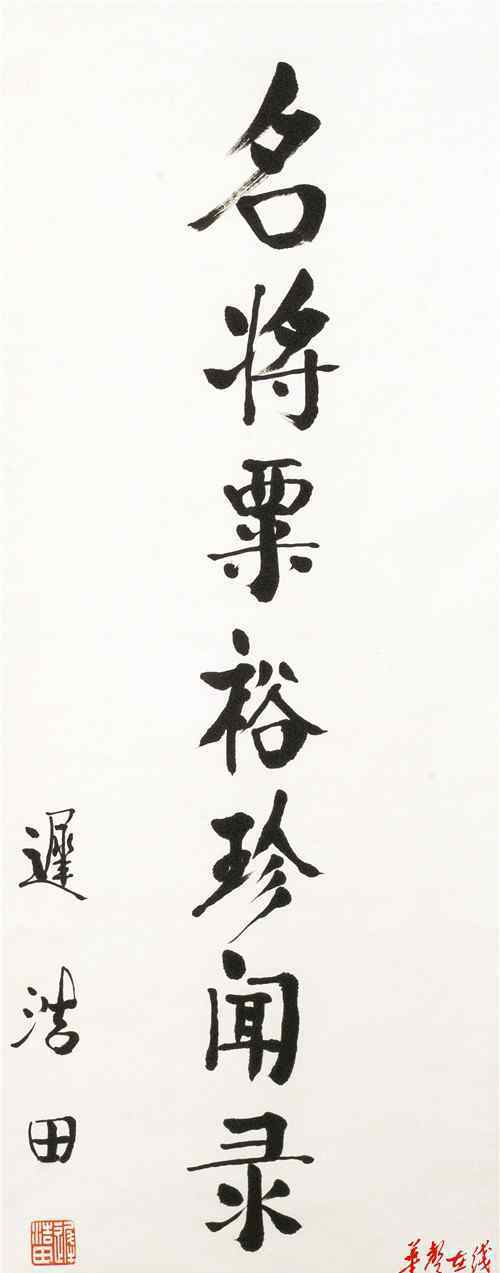 名将粟裕珍闻录
遲浩田
遲浩田
华声在线